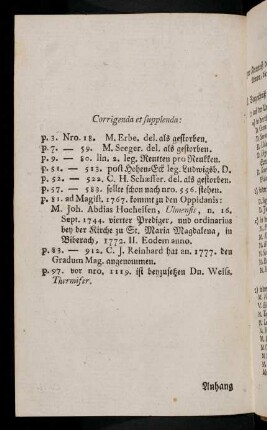 Corrigenda et supplenda:
p. 3. Nro. 18. M. Erbe. del. als gestorben.
p. 7. — 59. M. Seeger. del. als gestorben.
p. 9. — 80. lin. 2. leg. Rentten pro Renkken.
p. 51. — 513. post Hohen-Eck leg. Ludwigsb. D.
p. 52. — 522. C. H. Schæffer. del. als gestorben.
p. 57. — 583. sollte schon nach nro. 556. stehen.
p. 81. ad Magist. 1767. kommt zu den Oppidanis:
M. Joh. Abdias Hocheisen, Ulmensis, n. 16.
Sept. 1744. vierter Prediger, und ordinarius
bey der Kirche zu St. Maria Magdalena, in
Biberach, 1772. II. Eodem anno.
p. 83. — 912. C. J. Reinhard hat an. 1777. den
Gradum Mag. angenommen.
p. 97. vor nro. 1119. ist beyzusetzen Dn. Weiss.
Thermifer.
Anhang